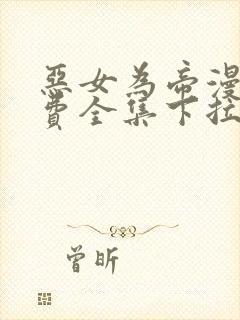 惡女為帝漫
費全集下拉
曾昕